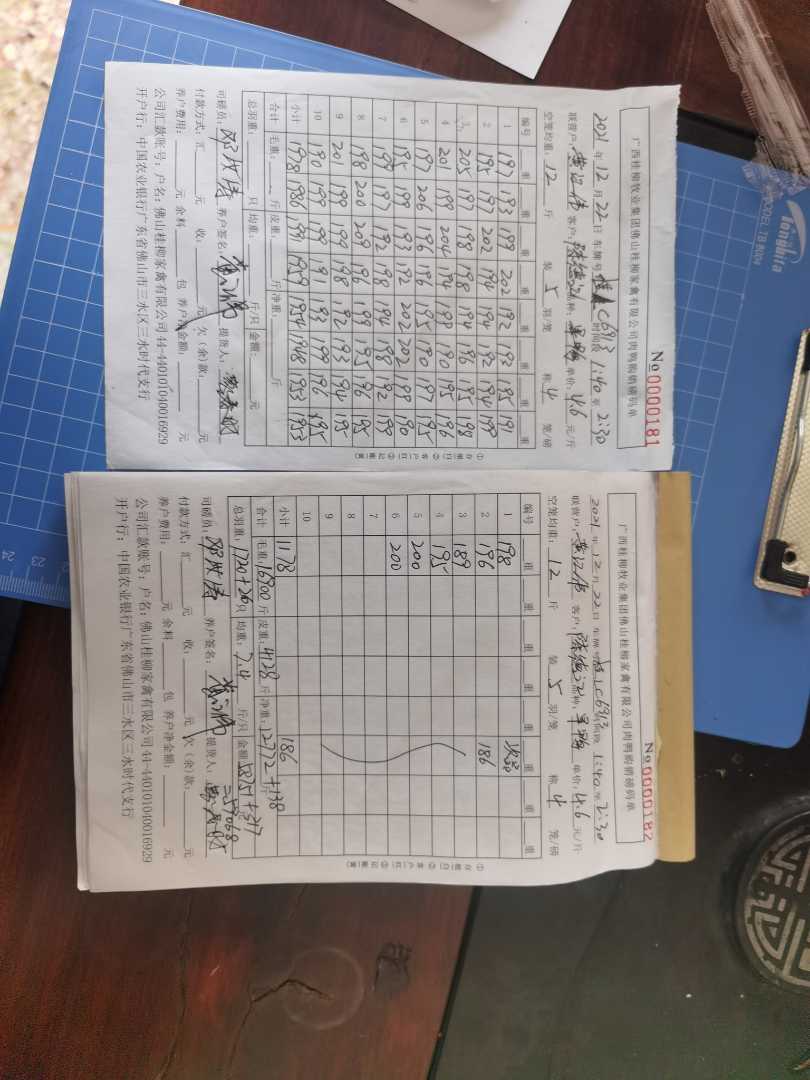 广西桂柳牧业集团佛山桂柳家禽有限公司肉鸭购销磅码单
№0000181
2021年12月22日 车牌号: C6913 时间段 1:40至2:30
联营户: 客户: 品种: 单价: 4.6元/斤
空笼均重: 12斤 装5羽/笼 称4笼/磅
编号 重 重 重 重 重 重 重 重
1 197 193 199 202 192 193 195 191
2 195 197 202 194 194 192 194 199
3 205 197 198 198 194 196 195 198
4 201 199 204 194 199 190 195 196
5 197 206 196 196 195 190 197 195
6 195 199 193 192 202 202 199 190
7 199 197 192 198 194 188 192 199
8 198 200 209 196 199 195 196 195
9 201 199 199 198 192 193 194 195
10 190 199 199 191 193 199 196 195
小计 1978 1986 1991 1959 1954 1948 1953 1953
合计 毛重: 斤 皮重: 斤 净重: 斤
总羽重: 只 均重: 斤/只 金额: 元
司磅员: 养户签名: 提货人:
付款方式: 汇 元 收: 元 欠(余)款: 元
养户费用: 元 余料 包 养户净金额: 元
公司汇款账号: 户名: 佛山桂柳家禽有限公司 44-440101040016929
开户行: 中国农业银行广东省佛山市三水区三水时代支行
①存根(白) ②客户(红) ③记账(黄)
广西桂柳牧业集团佛山桂柳家禽有限公司肉鸭购销磅码单
№0000182
2021年12月22日 车牌号: C6913 时间段 1:40至2:30
联营户: 客户: 品种: 单价: 4.6元/斤
空笼均重: 12斤 装5羽/笼 称4笼/磅
编号 重 重 重 重 重 重 重 重
1 198
2 196 186
3 189
4 195
5 200
6 200
7
8
9
10
小计 1178 186
合计 毛重: 16900斤 皮重: 4128斤 净重: 12772+138斤
总羽重: 1720+20只 均重: 7.4斤/只 金额: 58751+317
=59068
司磅员: 养户签名: 提货人:
付款方式: 汇 元 收: 元 欠(余)款: 元
养户费用: 元 余料 包 养户净金额: 元
公司汇款账号: 户名: 佛山桂柳家禽有限公司 44-440101040016929
开户行: 中国农业银行广东省佛山市三水区三水时代支行
①存根(白) ②客户(红) ③记账(黄)